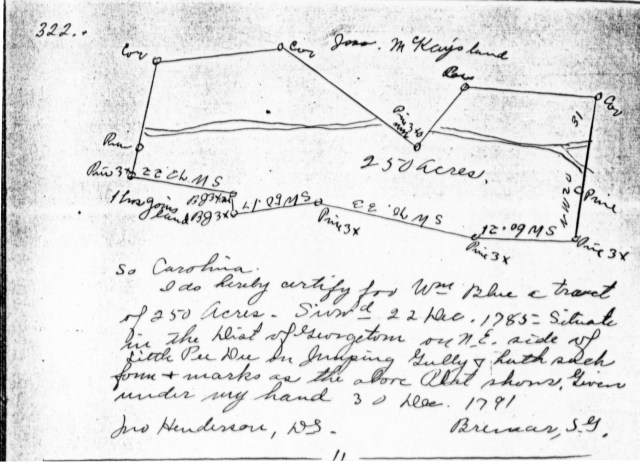 322.
Cor
Cor
Jno. McKay's land
Cor
Pine 3x
31
Pine
250 Acres.
Pine 3x
SW 70.22
Pine
SW 60.17
SW 70.33
SW 60.21
Pine 3x
Pine 3x
Pine 3x
land
Bg 3x
So Carolina.
I do hereby certify for Wm Blue a tract
of 250 Acres. Surv'd 22 Dec. 1785 = Situate
in the Dist of Georgetown on N.E. side of
Little Pee Dee on Jumping Gully & hath such
form & marks as the above Plat shows. Given
under my hand 30 Dec. 1791
Jno Henderson, DS. Bremar, S.G.